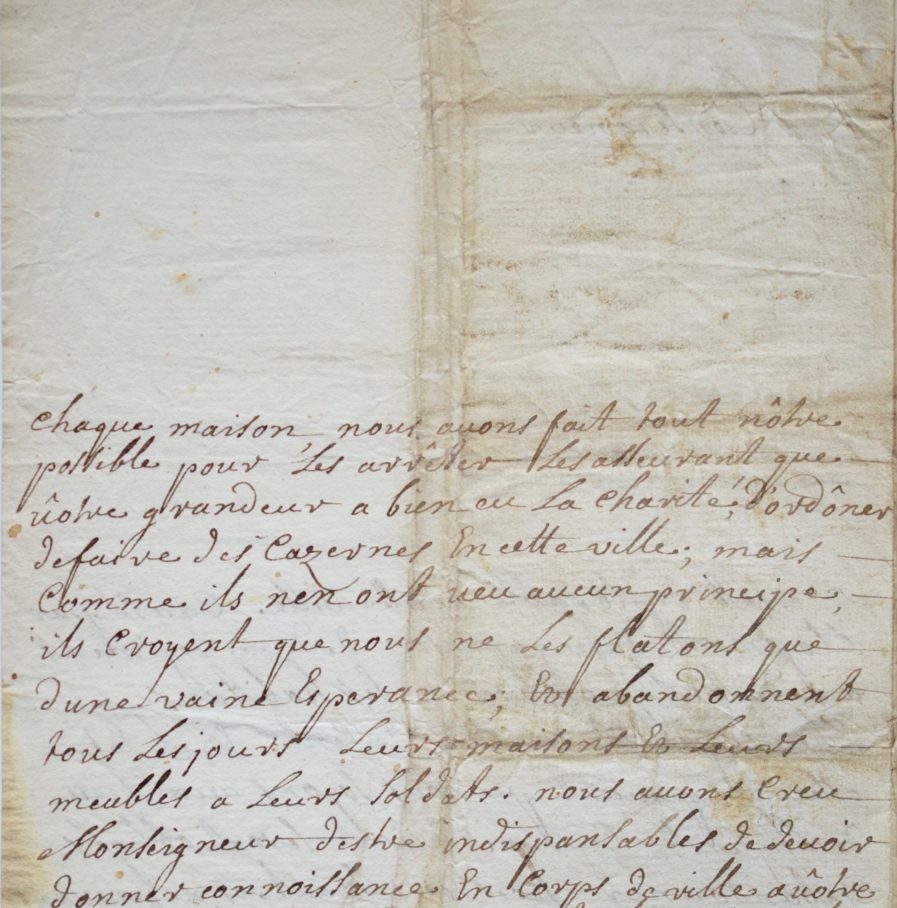 chaque maison, nous auons fait tout nôtre
possible pour Les arrêter Les asseurant que
vôtre grandeur a bien eu La charité, d'ordôner
de faire des Cazernes En cette ville; mais
Comme ils nen ont veu aucun principe,
ils Croyent que nous ne Les flatons que
dune vaine Esperance; Et abandonnent
tous Les jours Leurs maisons Et Leurs
meubles a Leurs Soldats. nous auons Creu
Monseigneur destre indispansables de deuoir
donner connoissance En Corps de ville a vôtre